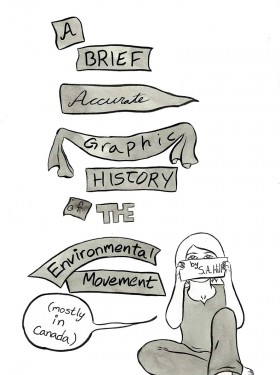 A
BRIEF
Accurate
Graphic
HISTORY
of THE
Environmental
Movement
(mostly
in
Canada)
by
S.A. Hill